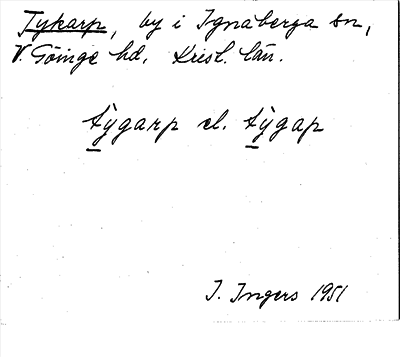 Tykarp, by i Ignaberga sn,
V. Göinge hd, Krist. län.
tỳgarp el. tỳgap
I. Ingers 1951